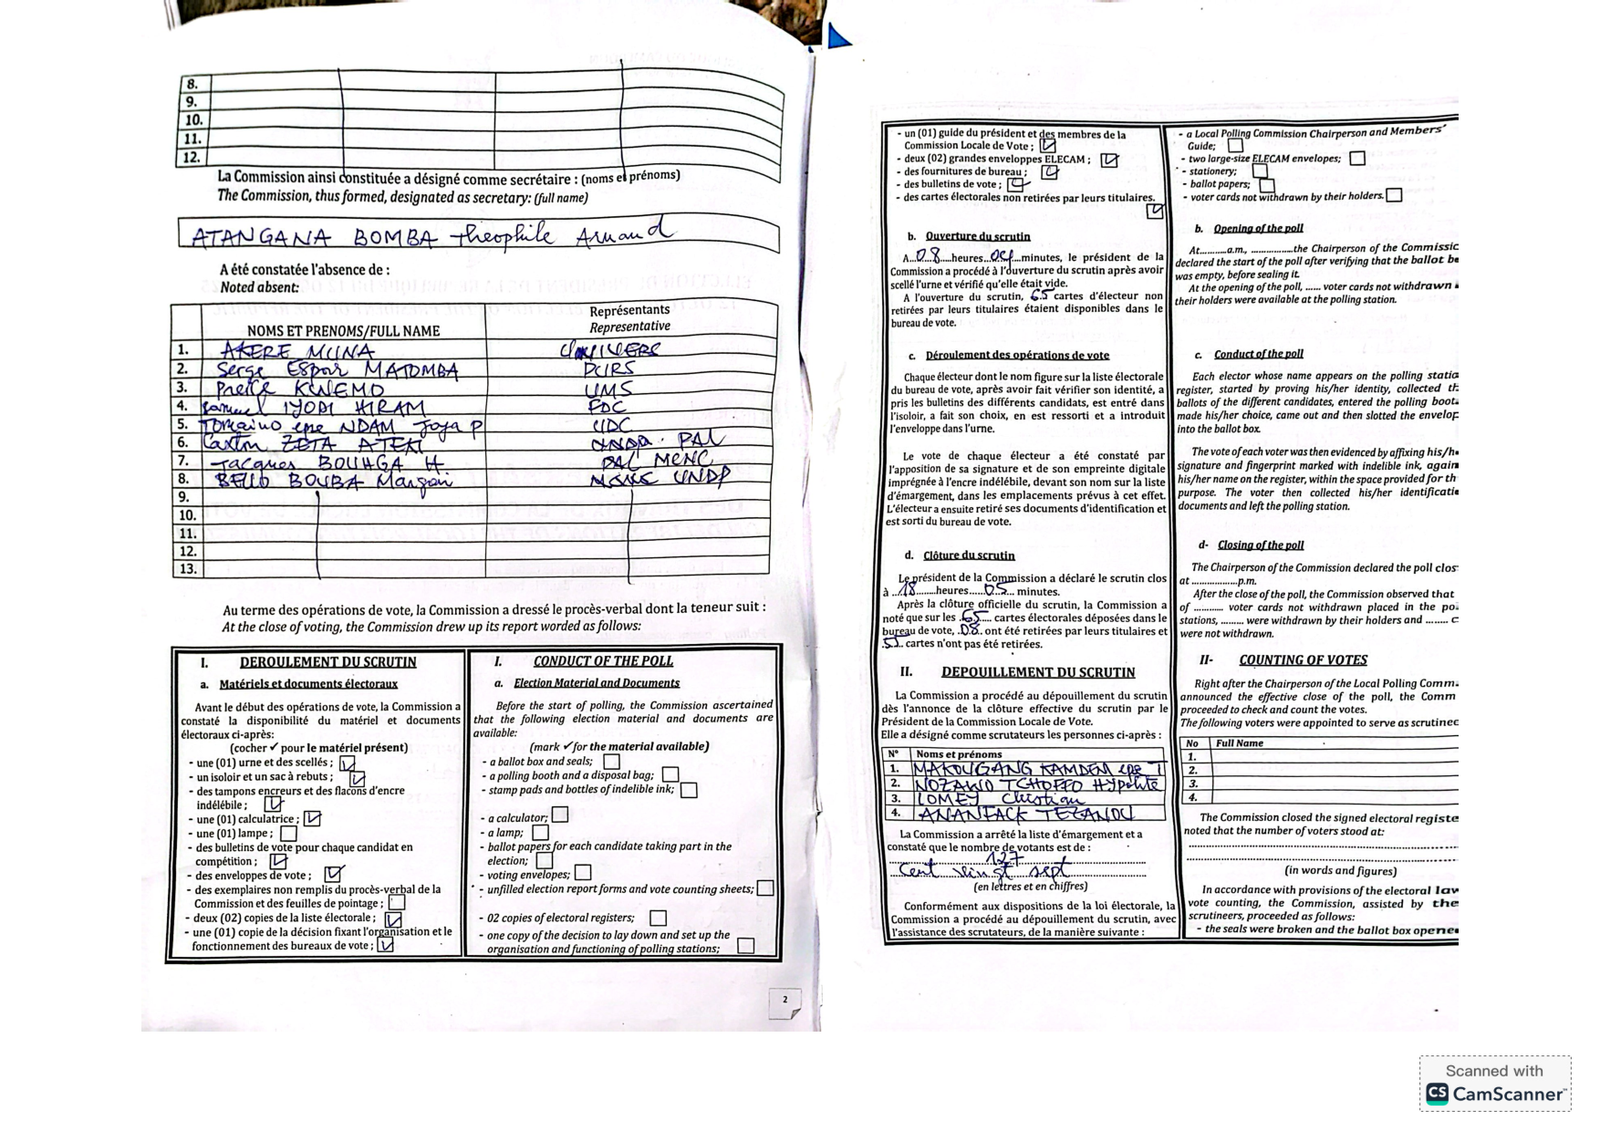 8.
9.
10.
11.
12.
La Commission ainsi constituée a désigné comme secrétaire : (noms et prénoms)
The Commission, thus formed, designated as secretary: (full name)
ATANGANA BOMBA Theophile Arnaud
A été constatée l'absence de :
Noted absent:
NOMS ET PRENOMS/FULL NAME
Représentants
Representative
1. AKERE MUNA UNIVERS
2. Serge Espoir MATOMBA PURS
3. Pierre KWEMO UMS
4. Samuel IYODI HIRAM FDC
5. Tomaino epe NDAM Joya P UDC
6. Caxton ZETA ATEKI PAL
7. Jacques BOUHGA H. MCNC
8. BELLO BOUBA Maïgari UNDP
9.
10.
11.
12.
13.
Au terme des opérations de vote, la Commission a dressé le procès-verbal dont la teneur suit :
At the close of voting, the Commission drew up its report worded as follows:
I. DEROULEMENT DU SCRUTIN
a. Matériels et documents électoraux
Avant le début des opérations de vote, la Commission a
constaté la disponibilité du matériel et documents
électoraux ci-après:
(cocher ✓ pour le matériel présent)
- une (01) urne et des scellés ; ☑
- un isoloir et un sac à rebuts ; ☑
- des tampons encreurs et des flacons d'encre
indélébile ; ☑
- une (01) calculatrice ; ☑
- une (01) lampe ; ☐
- des bulletins de vote pour chaque candidat en
compétition ; ☑
- des enveloppes de vote ; ☑
- des exemplaires non remplis du procès-verbal de la
Commission et des feuilles de pointage ; ☐
- deux (02) copies de la liste électorale ; ☑
- une (01) copie de la décision fixant l'organisation et le
fonctionnement des bureaux de vote ; ☑
I. CONDUCT OF THE POLL
a. Election Material and Documents
Before the start of polling, the Commission ascertained
that the following election material and documents are
available:
(mark ✓ for the material available)
- a ballot box and seals; ☐
- a polling booth and a disposal bag; ☐
- stamp pads and bottles of indelible ink; ☐
- a calculator; ☐
- a lamp; ☐
- ballot papers for each candidate taking part in the
election; ☐
- voting envelopes; ☐
- unfilled election report forms and vote counting sheets; ☐
- 02 copies of electoral registers; ☐
- one copy of the decision to lay down and set up the
organisation and functioning of polling stations; ☐
2
- un (01) guide du président et des membres de la
Commission Locale de Vote ; ☑
- deux (02) grandes enveloppes ELECAM ; ☑
- des fournitures de bureau ; ☑
- des bulletins de vote ; ☑
- des cartes électorales non retirées par leurs titulaires. ☑
b. Ouverture du scrutin
A...08...heures...04...minutes, le président de la
Commission a procédé à l'ouverture du scrutin après avoir
scellé l'urne et vérifié qu'elle était vide.
A l'ouverture du scrutin, 65 cartes d'électeur non
retirées par leurs titulaires étaient disponibles dans le
bureau de vote.
c. Déroulement des opérations de vote
Chaque électeur dont le nom figure sur la liste électorale
du bureau de vote, après avoir fait vérifier son identité, a
pris les bulletins des différents candidats, est entré dans
l'isoloir, a fait son choix, en est ressorti et a introduit
l'enveloppe dans l'urne.
Le vote de chaque électeur a été constaté par
l'apposition de sa signature et de son empreinte digitale
imprégnée à l'encre indélébile, devant son nom sur la liste
d'émargement, dans les emplacements prévus à cet effet.
L'électeur a ensuite retiré ses documents d'identification et
est sorti du bureau de vote.
d. Clôture du scrutin
Le président de la Commission a déclaré le scrutin clos
à ...18...heures......05... minutes.
Après la clôture officielle du scrutin, la Commission a
noté que sur les 65 cartes électorales déposées dans le
bureau de vote, .08. ont été retirées par leurs titulaires et
cartes n'ont pas été retirées.
II. DEPOUILLEMENT DU SCRUTIN
La Commission a procédé au dépouillement du scrutin
dès l'annonce de la clôture effective du scrutin par le
Président de la Commission Locale de Vote.
Elle a désigné comme scrutateurs les personnes ci-après :
N° Noms et prénoms
1. MAKOUGANG KAMDEM epe T
2. NOZAWO TCHOFFO Hypolite
3. LOMEY Christian
4. ANANFACK TEZANOU
La Commission a arrêté la liste d'émargement et a
constaté que le nombre de votants est de :
127
cent vingt sept
(en lettres et en chiffres)
Conformément aux dispositions de la loi électorale, la
Commission a procédé au dépouillement du scrutin, avec
l'assistance des scrutateurs, de la manière suivante :
- a Local Polling Commission Chairperson and Members'
Guide; ☐
- two large-size ELECAM envelopes; ☐
- stationery; ☐
- ballot papers; ☐
- voter cards not withdrawn by their holders. ☐
b. Opening of the poll
At..........a.m., ...............the Chairperson of the Commissic
declared the start of the poll after verifying that the ballot be
was empty, before sealing it.
At the opening of the poll, ...... voter cards not withdrawn
their holders were available at the polling station.
c. Conduct of the poll
Each elector whose name appears on the polling static
register, started by proving his/her identity, collected th
ballots of the different candidates, entered the polling boot.
made his/her choice, came out and then slotted the envelop
into the ballot box.
The vote of each voter was then evidenced by affixing his/h
signature and fingerprint marked with indelible ink, again
his/her name on the register, within the space provided for th
purpose. The voter then collected his/her identificati
documents and left the polling station.
d- Closing of the poll
The Chairperson of the Commission declared the poll clos
at ..................p.m.
After the close of the poll, the Commission observed that
of .......... voter cards not withdrawn placed in the po
stations, ......... were withdrawn by their holders and ........ c
were not withdrawn.
II- COUNTING OF VOTES
Right after the Chairperson of the Local Polling Comm
announced the effective close of the poll, the Comm
proceeded to check and count the votes.
The following voters were appointed to serve as scrutinee
No Full Name
1.
2.
3.
4.
The Commission closed the signed electoral registe
noted that the number of voters stood at:
(in words and figures)
In accordance with provisions of the electoral law
vote counting, the Commission, assisted by the
scrutineers, proceeded as follows:
- the seals were broken and the ballot box opene
Scanned with
CS CamScanner